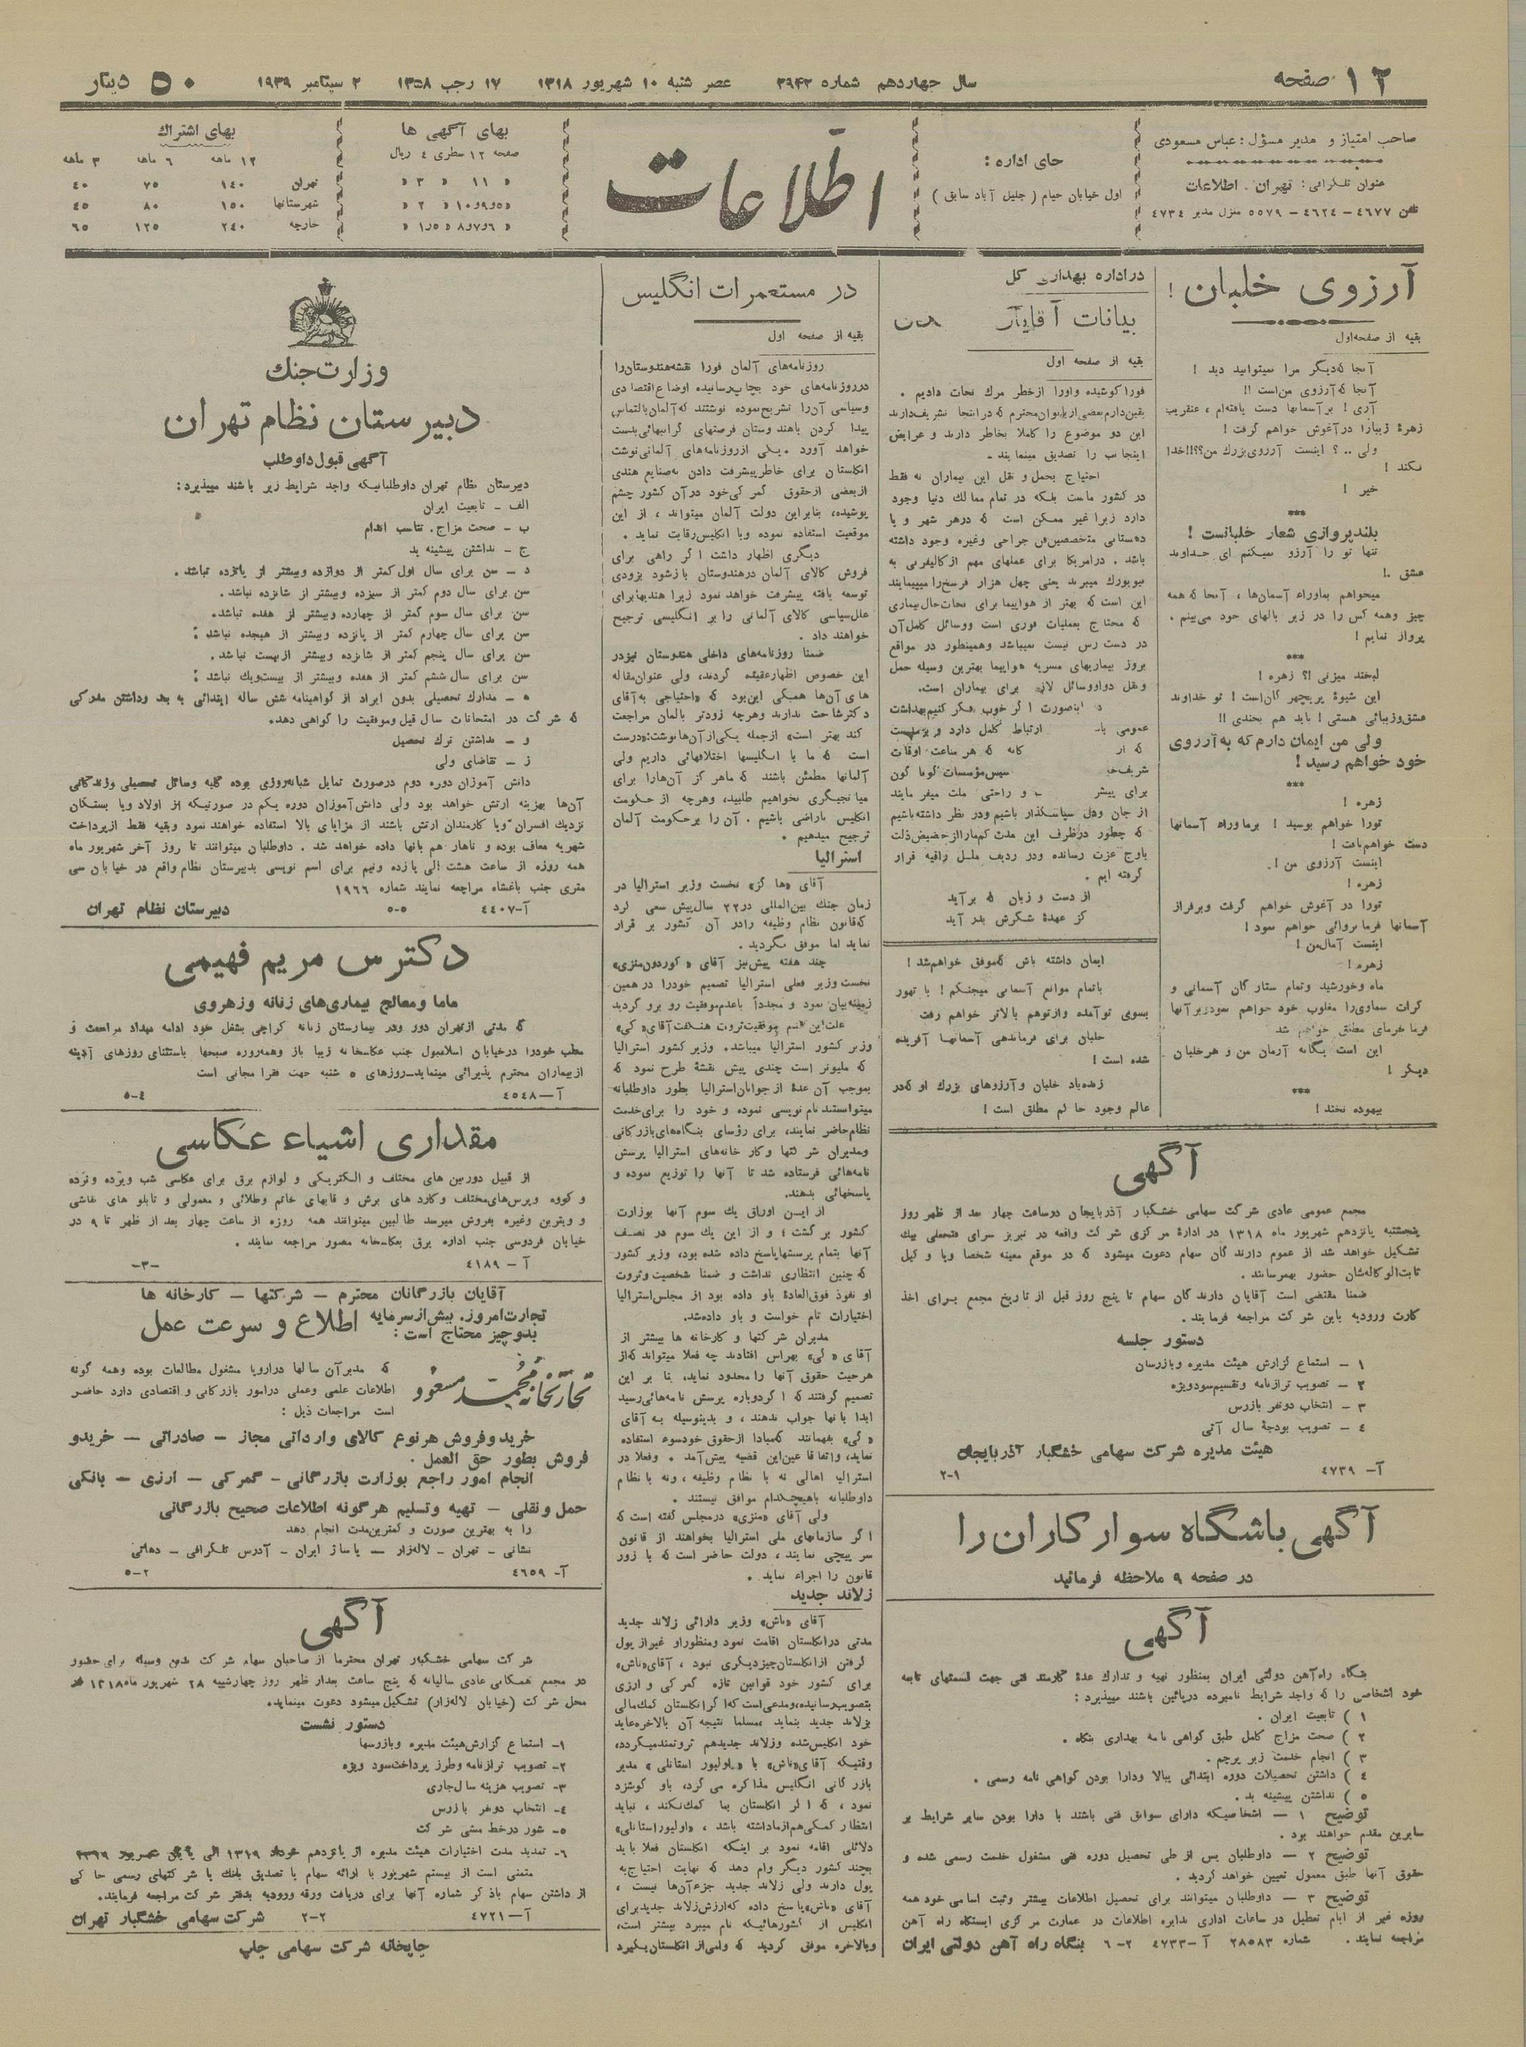 ۱۲ صفحه
سال چهاردهم شماره ۳۹۴۲ عصر شنبه ۱۰ شهریور ۱۳۱۸ ۱۷ رجب ۱۳۵۸ ۲ سپتامبر ۱۹۳۹
۵۰ دینار
صاحب امتیاز و مدیر مسؤل : عباس مسعودی
عنوان تلگرافی : تهران . اطلاعات
تلفن ۴۶۷۷ - ۴۶۲۴ - ۵۵۷۹ منزل مدیر ۴۷۳۴
جای اداره :
اول خیابان خیام ( جلیل آباد سابق )
اطلاعات
بهای آگهی ها
صفحه ۱۲ سطری ۴ ریال
« ۱۱ « ۳ «
« ۵و۹و۱۰ « ۲ «
« ۶و۷و۸ « ۱٫۵ «
بهای اشتراك
۱۲ ماهه ۶ ماهه ۳ ماهه
تهران ۱۴۰ ۷۵ ۴۰
شهرستانها ۱۵۰ ۸۰ ۴۵
خارجه ۲۴۰ ۱۲۵ ۶۵
آرزوی خلبان !
بقیه از صفحه اول
آنجا که دیگر مرا نمیتوانید دید !
آنجا که آرزوی من است !!
آری ! بر آسمانها دست یافته‌ام ، عنقریب
زهرهٔ زیبارا در آغوش خواهم گرفت !
ولی .. ؟ اینست آرزوی بزرك من؟؟!!خدا
نکند !
خیر !
***
بلندپروازی شعار خلبانست !
تنها تو را آرزو نمیکنم ای خداوند
عشق .!
میخواهم بماوراء آسمان‌ها ، آنجا که همه
چیز وهمه کس را در زیر بالهای خود می‌بینم .
پرواز نمایم !
***
لبخند میزنی !؟ زهره !
این شیوهٔ پریچهر گان‌است ! تو خداوند
عشق‌وزیبائی هستی ! باید هم بخندی !!
ولی من ایمان دارم که به آرزوی
خود خواهم رسید !
***
زهره !
تورا خواهم بوسید ! برماوراء آسمانها
دست خواهم‌یافت !
اینست آرزوی من !.
زهره !
تورا در آغوش خواهم گرفت وبرفراز
آسمانها فرمانروائی خواهم نمود !
اینست آمال‌من !
زهره !
ماه وخورشید وتمام ستار گان آسمانی و
کرات سماوی‌را مغلوب خود خواهم نمودوبرآنها
فرمانفرمای مطلق خواهم شد
این است یگانه آرمان من و هرخلبان
دیگر !
***
بیهوده نخند !
در اداره بهداری کل
بیانات آقای
بقیه از صفحه اول
فورا کوشیده واورا ازخطر مرك نجات دادیم .
یقین‌دارم بعضی ازبانوان محترم که در اینجا تشریف‌دارند
این دو موضوع را کاملا بخاطر دارند و عرایض
اینجانب را تصدیق مینمایند .
احتیاج بحمل و نقل این بیماران نه فقط
در کشور ماست بلکه در تمام ممالك دنیا وجود
دارد زیرا غیر ممکن است که درهر شهر و یا
دهستانی متخصصین‌فن جراحی وغیره وجود داشته
باشد . درامریکا برای عملهای مهم ازکالیفرنی به
نیویورك میبرند یعنی چهل هزار فرسخ‌را میپیمایند
این است که بهتر از هواپیما برای نجات‌حال‌بیماری
که محتاج بعملیات فوری است ووسائل کامل‌آن
در دست رس نیست نمیباشد وهمینطور در مواقع
بروز بیماریهای مسریه هواپیما بهترین وسیله حمل
ونقل دواووسائل لازم برای بیماران است.
اینصورت ا گر خوب فکر کنیم‌بهداشت
عمومی ارتباط کامل دارد و
که از که هر ساعت اوقات
سپس‌مؤسسات گونا گون
برای و راحتی ملت میفرمایند
از جان ودل سپاسگذار باشیم ودر نظر داشته‌باشیم
که چطور درظرف این مدت کم‌ماراازحضیض‌ذلت
باوج عزت رسانده ودر ردیف ملل راقیه قرار
گرفته ایم .
از دست و زبان که برآید
کز عهدهٔ شکرش بدر آید
ایمان داشته باش که‌موفق خواهم‌شد !
باتمام موانع آسمانی میجنگم ! با تهور
بسوی توآمده وازتوهم بالاتر خواهم رفت
خلبان برای فرماندهی آسمانها آفریده
شده است !
زنده‌باد خلبان وآرزوهای بزرك او که‌در
عالم وجود حاکم مطلق است !
آگهی
مجمع عمومی عادی شرکت سهامی خشگبار آذربایجان دوساعت چهار بعد از ظهر روز
پنجشنبه پانزدهم شهریور ماه ۱۳۱۸ در ادارهٔ مرکزی شرکت واقعه در تبریز سرای فتحعلی بیك
تشکیل خواهد شد از عموم دارند گان سهام دعوت میشود که در موقع معینه شخصا ویا وکیل
ثابت‌الوکاله‌شان حضور بهم‌رسانند .
ضمنا مقتضی است آقایان دارند گان سهام تا پنج روز قبل از تاریخ مجمع برای اخذ
کارت ورودیه باین شرکت مراجعه فرمایند.
دستور جلسه
۱ - استماع گزارش هیئت مدیره وبازرسان
۲ - تصویب ترازنامه وتقسیم‌سودویژه
۳ - انتخاب دونفر بازرس
۴ - تصویب بودجهٔ سال آتی
هیئت مدیره شرکت سهامی خشگبار آذربایجان
آ- ۴۷۳۹ ۲-۱
آگهی باشگاه سوارکاران را
در صفحه ۹ ملاحظه فرمائید
آگهی
بنگاه راه‌آهن دولتی ایران بمنظور تهیه و تدارك عدهٔ کارمند فنی جهت قسمتهای تابعه
خود اشخاصی را که واجد شرایط نامبرده درپائین باشند میپذیرد :
۱ ) تابعیت ایران .
۲ ) صحت مزاج کامل طبق گواهی نامه بهداری بنگاه .
۳ ) انجام خدمت زیر پرچم .
۴ ) داشتن تحصیلات دوره ابتدائی ببالا ودارا بودن گواهی نامه رسمی .
۵ ) نداشتن پیشینه بد .
توضیح ۱ - اشخاصیکه دارای سوابق فنی باشند با دارا بودن سایر شرایط بر
سایرین مقدم خواهند بود .
توضیح ۲ - داوطلبان پس از طی تحصیل دوره فنی مشغول خدمت رسمی شده و
حقوق آنها طبق معمول تعیین خواهد گردید .
توضیح ۳ - داوطلبان میتوانند برای تحصیل اطلاعات بیشتر وثبت اسامی خود همه
روزه غیر از ایام تعطیل در ساعات اداری بدایره اطلاعات در عمارت مرکزی ایستگاه راه آهن
مراجعه نمایند . شماره ۲۸۵۸۳ آ-۴۷۳۳ ۶-۲ بنگاه راه آهن دولتی ایران
در مستعمرات انگلیس
بقیه از صفحه اول
روزنامه‌های آلمان فورا نقشه‌هندوستان‌را
درروزنامه‌های خود بچاپ‌رسانیده اوضاع اقتصادی
وسیاسی آن‌را تشریح‌نموده نوشتند که‌آلمان‌باالتماس
پیدا کردن باهندوستان فرصتهای گرانبهائی‌بدست
خواهد آورد . یکی ازروزنامه‌های آلمانی‌نوشت
انگلستان برای خاطرپیشرفت دادن به‌صنایع هندی
ازبعضی ازحقوق گمرکی‌خود درآن کشور چشم
پوشیده، بنابراین دولت آلمان میتواند ، از این
موقعیت استفاده نموده وبا انگلیس‌رقابت نماید .
دیگری اظهار داشت ا گر راهی برای
فروش کالای آلمان درهندوستان بازشود بزودی
توسعه یافته پیشرفت خواهد نمود زیرا هندیهابرای
علل‌سیاسی کالای آلمانی را بر انگلیسی ترجیح
خواهند داد .
ضمنا روزنامه‌های داخلی هندوستان نیزدر
این خصوص اظهارعقیده گردند، ولی عنوان‌مقاله
های آن‌ها همگی این‌بود که «احتیاجی به‌آقای
دکترشاخت ندارند وهرچه زودتر بالمان مراجعت
کند بهتر است» ازجمله یکی‌ازآن‌هانوشت:«درست
است که ما با انگلیسها اختلافهائی داریم ولی
آلمانها مطمئن باشند که‌ماهر گز آن‌هارا برای
میانجیگری نخواهیم طلبید، وهرچه از حکومت
انگلیس ناراضی باشیم . آن را برحکومت آلمان
ترجیح میدهیم .
استرالیا
آقای «هاگز» نخست وزیر استرالیا در
زمان جنك بین‌المللی در۲۲ سال‌پیش سعی کرد
که‌قانون نظام وظیفه رادر آن کشور بر قرار
نماید اما موفق نگردید .
چند هفته پیش‌نیز آقای « کوردون‌منزی»
نخست وزیر فعلی استرالیا تصمیم خودرا درهمین
زمینه‌بیان نمود و مجدداً باعدم‌موفقیت رو برو گردید
علت‌این‌عدم موفقیت‌ثروت هنگفت‌آقای« کی»
وزیر کشور استرالیا میباشد. وزیر کشور استرالیا
که ملیونر است چندی پیش نقشهٔ طرح نمود که
بموجب آن عدهٔ ازجوانان‌استرالیا بطور داوطلبانه
میتوانستند نام نویسی نموده و خود را برای‌خدمت
نظام‌حاضر نمایند، برای رؤسای بنگاه‌های‌بازرگانی
ومدیران شرکتها وکار خانه‌های استرالیا پرسش
نامه‌هائی فرستاده شد تا آنها را توزیع نموده و
پاسخهائی بدهند.
از این اوراق یك سوم آنها بوزارت
کشور برگشت ؛ و از این یك سوم در نصف
آنها بتمام پرسشهاپاسخ داده شده بود، وزیر کشور
که چنین انتظاری نداشت و ضمنا شخصیت‌وثروت
او نفوذ فوق‌العادهٔ باو داده بود از مجلس‌استرالیا
اختیارات تام خواست و باو داده‌شد.
مدیران شرکتها و کارخانه ها بیشتر از
آقای « کی» بهراس افتادند چه فعلا میتواند که‌از
هرحیث حقوق آنها را محدود نماید، بنا بر این
تصمیم گرفتند که ا گردوباره پرسش نامه‌هائی‌رسید
ابدا بانها جواب ندهند ، و بدینوسیله به آقای
« کی» بفهمانند که‌مبادا ازحقوق خودسوء استفاده
نماید، واتفاقا عین‌این قضیه پیش‌آمد . وفعلا در
استرالیا اهالی نه با نظام وظیفه، ونه با نظام
داوطلبانه باهیچکدام موافق نیستند .
ولی آقای «منزی» درمجلس گفته است که
ا گر سازمانهای ملی استرالیا بخواهند از قانون
سر پیچی نمایند ، دولت حاضر است که با زور
قانون را اجراء نماید .
زلاند جدید
آقای «ناش» وزیر دارائی زلاند جدید
مدتی درانگلستان اقامت نمود ومنظوراو غیرازپول
گرفتن ازانگلستان‌چیزدیگری نبود ، آقای«ناش»
برای کشور خود قوانین تازه گمرکی و ارزی
بتصویب‌رسانیده،ومدعی‌است که‌ا گرانگلستان کمك‌مالی
بزلاند جدید بنماید ،مسلما نتیجه آن بالاخره‌عاید
خود انگلیس‌شده وزلاند جدیدهم ثروتمندمیگردد،
وقتیکه آقای«ناش» با «اولیور استانلی» مدیر
بازرگانی انگلیس مذاکره می‌کرد، باو گوشزد
نمود ، که اگر انگلستان بما کمك‌نکند ، نباید
انتظار کمکی‌هم‌ازماداشته باشد ، «اولیوراستانلی»
دلائلی اقامه نمود بر اینکه انگلستان فعلا باید
بچند کشور دیگر وام دهد که نهایت احتیاج‌به
پول دارند ولی زلاند جدید جزءآن‌ها نیست ،
آقای «ناش»پاسخ داد که‌ارزش‌زلاند جدیدبرای
انگلیس از کشورهائیکه نام میبرد بیشتر است،
وبالاخره موفق گردید که وامی‌از انگلستان‌بگیرد
وزارت جنك
دبیرستان نظام تهران
آگهی قبول داوطلب
دبیرستان نظام تهران داوطلبانیکه واجد شرایط زیر باشند میپذیرد :
الف - تابعیت ایران
ب - صحت مزاج. تناسب اندام
ج - نداشتن پیشینه بد
د - سن برای سال اول کمتر از دوازده وبیشتر از پانزده نباشد .
سن برای سال دوم کمتر از سیزده وبیشتر از شانزده نباشد.
سن برای سال سوم کمتر از چهارده وبیشتر از هفده نباشد.
سن برای سال چهارم کمتر از پانزده وبیشتر از هیجده نباشد ؛
سن برای سال پنجم کمتر از شانزده وبیشتر ازبیست نباشد .
سن برای سال ششم کمتر از هفده وبیشتر از بیست‌ویك نباشد ؛
ه - مدارك تحصیلی بدون ایراد از گواهینامه شش ساله ابتدائی به بعد وداشتن مدرکی
که شرکت در امتحانات سال قبل وموفقیت را گواهی دهد.
و - نداشتن ترك تحصیل
ز - تقاضای ولی
دانش آموزان دوره دوم درصورت تمایل شبانه‌روزی بوده کلیه وسائل تحصیلی وزندگانی
آن‌ها بهزینه ارتش خواهد بود ولی دانش‌آموزان دوره یکم در صورتیکه از اولاد ویا بستگان
نزدیك افسران ویا کارمندان ارتش باشند از مزایای بالا استفاده خواهند نمود وبقیه فقط ازپرداخت
شهریه معاف بوده و ناهار هم بانها داده خواهد شد . داوطلبان میتوانند تا روز آخر شهریور ماه
همه روزه از ساعت هشت الی یازده ونیم برای اسم نویسی بدبیرستان نظام واقع در خیابان سی
متری جنب باغشاه مراجعه نمایند شماره ۱۹۶۶
آ-۴۴۰۷ ۵-۵ دبیرستان نظام تهران
دکترس مریم فهیمی
ماما ومعالج بیماری‌های زنانه وزهروی
که مدتی ازتهران دور ودر بیمارستان زنانه کراچی بشغل خود ادامه میداد مراجعت و
مطب خودرا درخیابان اسلامبول جنب عکاسخانه زیبا باز وهمه‌روزه صبحها باستثنای روزهای آدینه
ازبیماران محترم پذیرائی مینماید_روزهای ۵ شنبه جهت فقرا مجانی است
آ-۴۵۴۸ ۵-۴
مقداری اشیاء عکاسی
از قبیل دوربین های مختلف و الکتریکی و لوازم برق برای عکاسی شب وپرده ونرده
و کووه وپرس‌های‌مختلف وکارد های برش و قابهای خاتم وطلائی و معمولی و تابلو های نقاشی
و ویترین وغیره بفروش میرسد طالبین میتوانند همه روزه از ساعت چهار بعد از ظهر تا ۹ در
خیابان فردوسی جنب اداره برق بعکاسخانه مصور مراجعه نمایند .
آ - ۴۱۸۹ -۳-
آقایان بازرگانان محترم - شرکتها - کارخانه ها
تجارت‌امروز. بیش‌ازسرمایه اطلاع و سرعت عمل
بدوچیز محتاج است :
تجارتخانه محمد مسعود
که مدیرآن سالها دراروپا مشغول مطالعات بوده وهمه گونه
اطلاعات علمی وعملی درامور بازرگانی و اقتصادی دارد حاضر
است مراجعات ذیل :
خرید وفروش هرنوع کالای وارداتی مجاز - صادراتی - خریدو
فروش بطور حق العمل .
انجام امور راجع بوزارت بازرگانی - گمرکی - ارزی - بانکی
حمل ونقلی - تهیه وتسلیم هرگونه اطلاعات صحیح بازرگانی
را به بهترین صورت و کمترین‌مدت انجام دهد
نشانی - تهران - لاله‌زار - پاساژ ایران - آدرس تلگرافی - دهاتی
آ- ۴۶۵۹ ۵-۲
آگهی
شرکت سهامی خشگبار تهران محترما از صاحبان سهام شرکت بدین وسیله برای حضور
در مجمع همگانی عادی سالیانه که پنج ساعت بعداز ظهر روز چهارشنبه ۲۸ شهریور ماه۱۳۱۸ در
محل شرکت (خیابان لاله‌زار) تشکیل میشود دعوت مینماید.
دستور نشست
۱- استماع گزارش‌هیئت مدیره وبازرسها
۲- تصویب ترازنامه وطرز پرداخت‌سود ویژه
۳- تصویب هزینه سال‌جاری
۴- انتخاب دونفر بازرس
۵- شور درخط مشی شرکت
۶- تمدید مدت اختیارات هیئت مدیره از پانزدهم
متمنی است از بیستم شهریور با ارائه سهام یا تصدیق بانك یا شرکتهای رسمی حا کی
از داشتن سهام باذکر شماره آنها برای دریافت ورقه ورودیه بدفتر شرکت مراجعه فرمایند.
آ-۴۷۲۱ ۲-۲ شرکت سهامی خشگبار تهران
چاپخانه شرکت سهامی چاپ